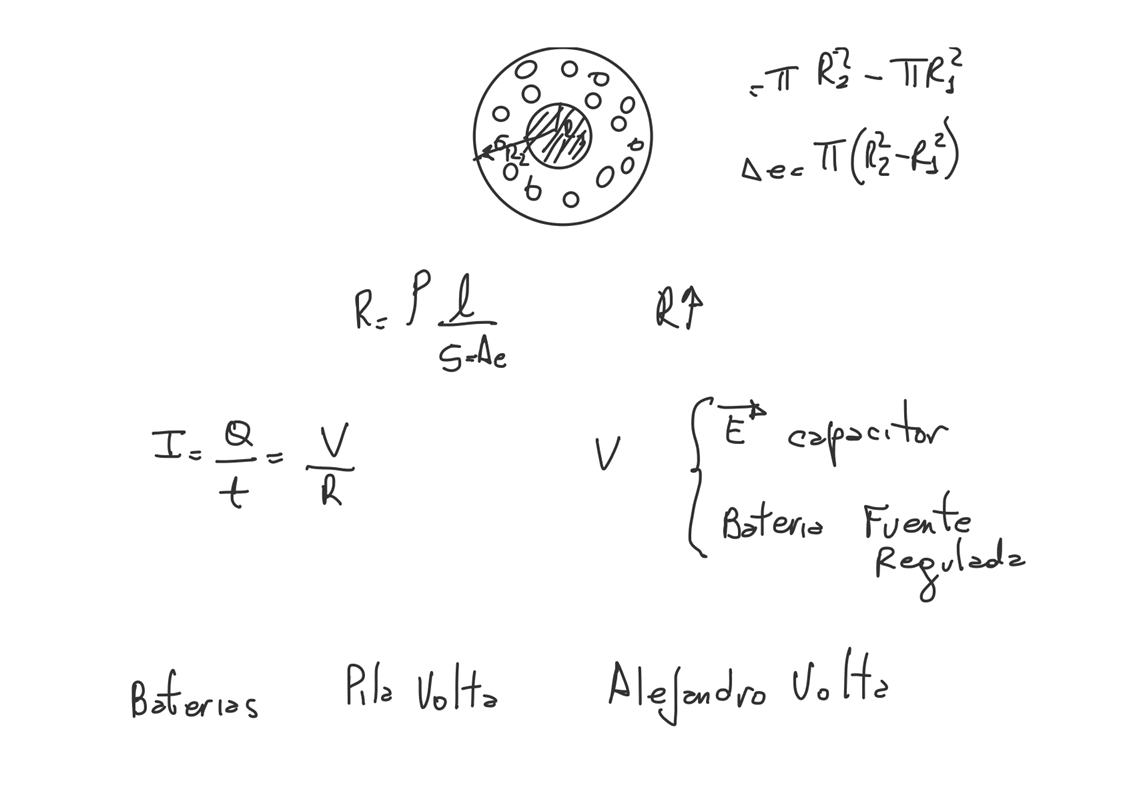 = π R₂² – πR₁²
Ae= π(R₂²–R₁²)
R₂
R= ρ l / S=Ae
R↑
I = Q/t = V/R
V { E⃗ capacitor
Bateria Fuente
Regulada
Baterias Pila Volta Alejandro Volta